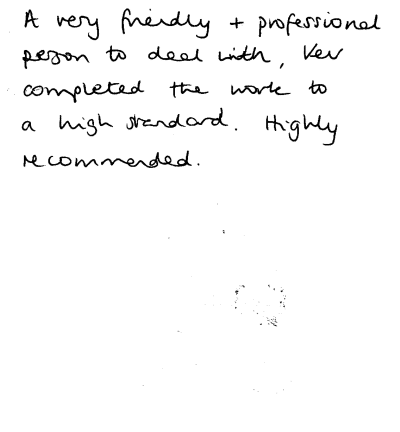 A very friendly + professional
person to deal with, Kev
completed the work to
a high standard. Highly
recommended.